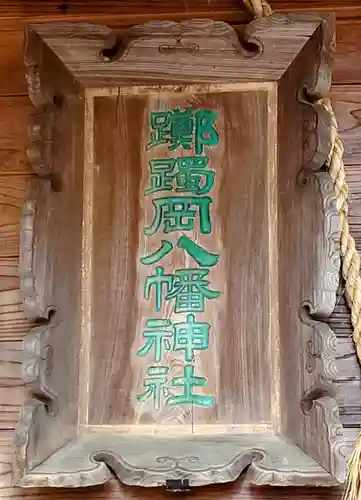 躑躅岡八幡神社